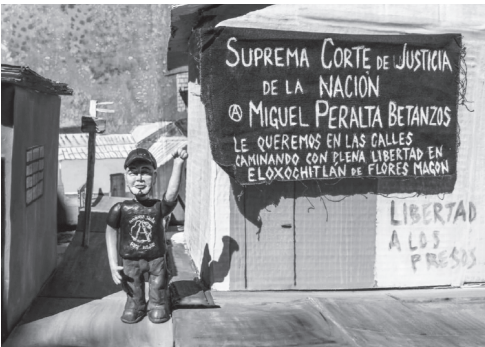 SUPREMA CORTE DE JUSTICIA
DE LA NACIÓN
Ⓐ MIGUEL PERALTA BETANZOS
LE QUEREMOS EN LAS CALLES
CAMINANDO CON PLENA LIBERTAD EN
ELOXOCHITLÁN DE FLORES MAGÓN
LIBERTAD
A LOS
PRESOS